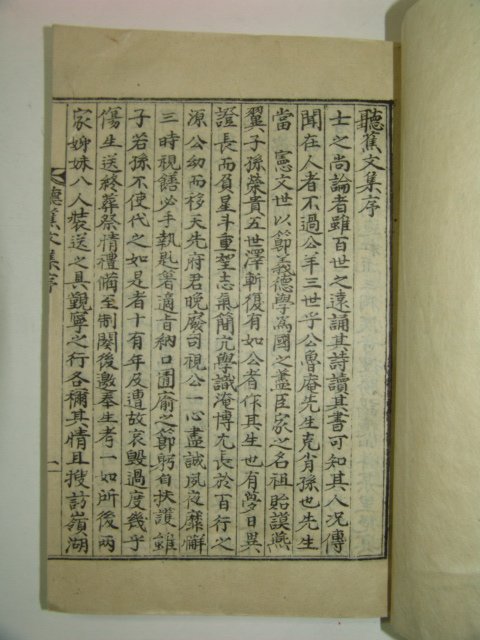 聽蕉文集序
士之尚論者雖百世之遠誦其詩讀其書可知其人况傳
聞在人者不過公羊三世乎公魯庵先生克肖孫也先生
當 憲文世以節義德學爲國之藎臣家之名祖貽謨燕
翼子孫榮貴五世澤斬復有如公者作其生也有夢日異
證長而負星斗重望志氣簡亢學識淹博尤長於百行之
源公幼而移天先府君晚廢司視公一心盡誠夙夜靡懈
三時視饍必手執匙箸適旨納口圊廁之節躬自扶護雖
子若孫不使代之如是者十有年及遭故哀毁過度幾乎
傷生送終葬祭情禮備至制闋後邀奉生考一如所後兩
家姊妹八人裝送之具覲寧之行各稱其情且搜訪嶺湖
聽蕉文集序
一